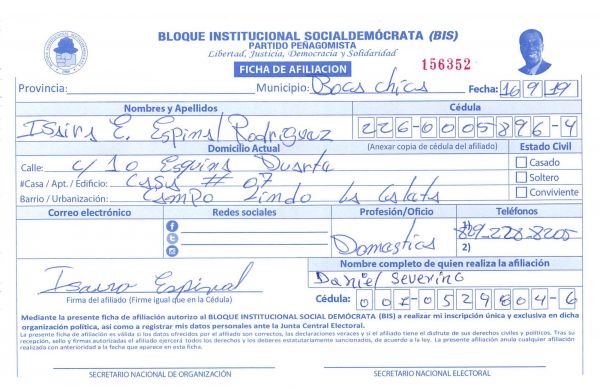 BLOQUE INSTITUCIONAL SOCIALDEMÓCRATA (BIS)
PARTIDO PEÑAGOMISTA
Libertad, Justicia, Democracia y Solidaridad
FICHA DE AFILIACION
156352
Provincia: Municipio: Boca chica Fecha: 16 9 19
Nombres y Apellidos Cédula
Isaira E. Espinal Rodriguez 226-0005896-4
Domicilio Actual (Anexar copia de cédula del afiliado) Estado Civil
Calle: c/ 10 Esquina Duarte Casado
#Casa / Apt. / Edificio: Casa # 07 Soltero
Barrio / Urbanización: Campo Lindo La Caleta Conviviente
Correo electrónico Redes sociales Profesión/Oficio Teléfonos
Domestica 1) 829-228-8205
2)
Nombre completo de quien realiza la afiliación
Espinal Daniel Severino
Firma del afiliado (Firme igual que en la Cédula) Cédula: 007-0529804-6
Mediante la presente ficha de afiliación autorizo al BLOQUE INSTITUCIONAL SOCIAL DEMÓCRATA (BIS) a realizar mi inscripción única y exclusiva en dicha
organización política, así como a registrar mis datos personales ante la Junta Central Electoral.
La presente ficha de afiliación es válida si los datos ofrecidos por el afiliado son correctos, las declaraciones veraces y si el afiliado tiene el disfrute de sus derechos civiles y políticos. Tras su
recepción, sello y firmas autorizadas el afiliado ejercerá todos los derechos y los deberes estatutariamente sancionados, de acuerdo a la ley. La presente afiliación anula cualquier afiliación
realizada con anterioridad a la fecha que aparece en esta ficha.
SECRETARIO NACIONAL DE ORGANIZACIÓN SECRETARIO NACIONAL ELECTORAL